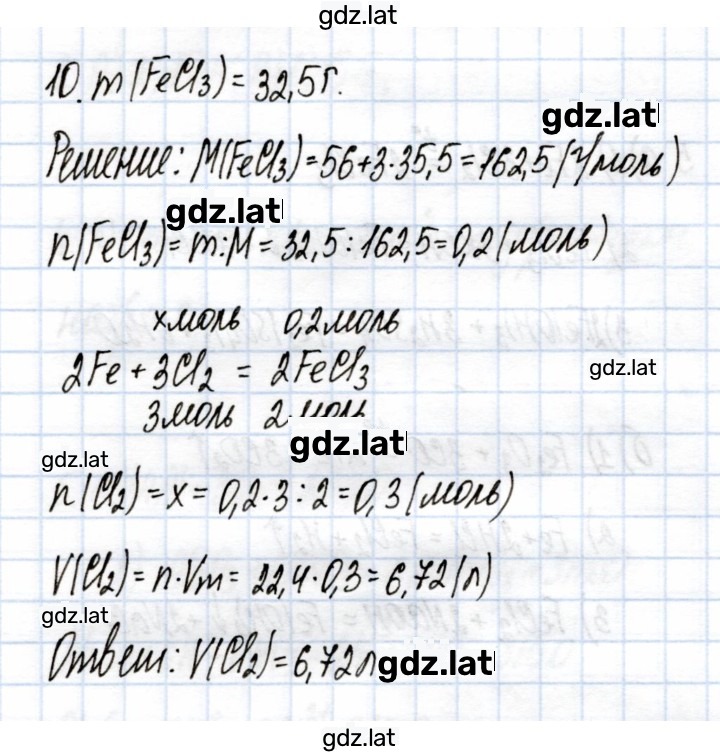 gdz.lat
10. m(FeCl3) = 32,5 г.
gdz.lat
Решение: M(FeCl3) = 56+3·35,5 = 162,5 (г/моль)
gdz.lat
n(FeCl3) = m:M = 32,5 : 162,5 = 0,2 (моль)
x моль 0,2 моль
2Fe + 3Cl2 = 2FeCl3
gdz.lat
3 моль 2 моль
gdz.lat
gdz.lat
n(Cl2) = x = 0,2·3 : 2 = 0,3 (моль)
V(Cl2) = n·Vm = 22,4·0,3 = 6,72 (л)
gdz.lat
Ответ: V(Cl2) = 6,72 л
gdz.lat
gdz.lat